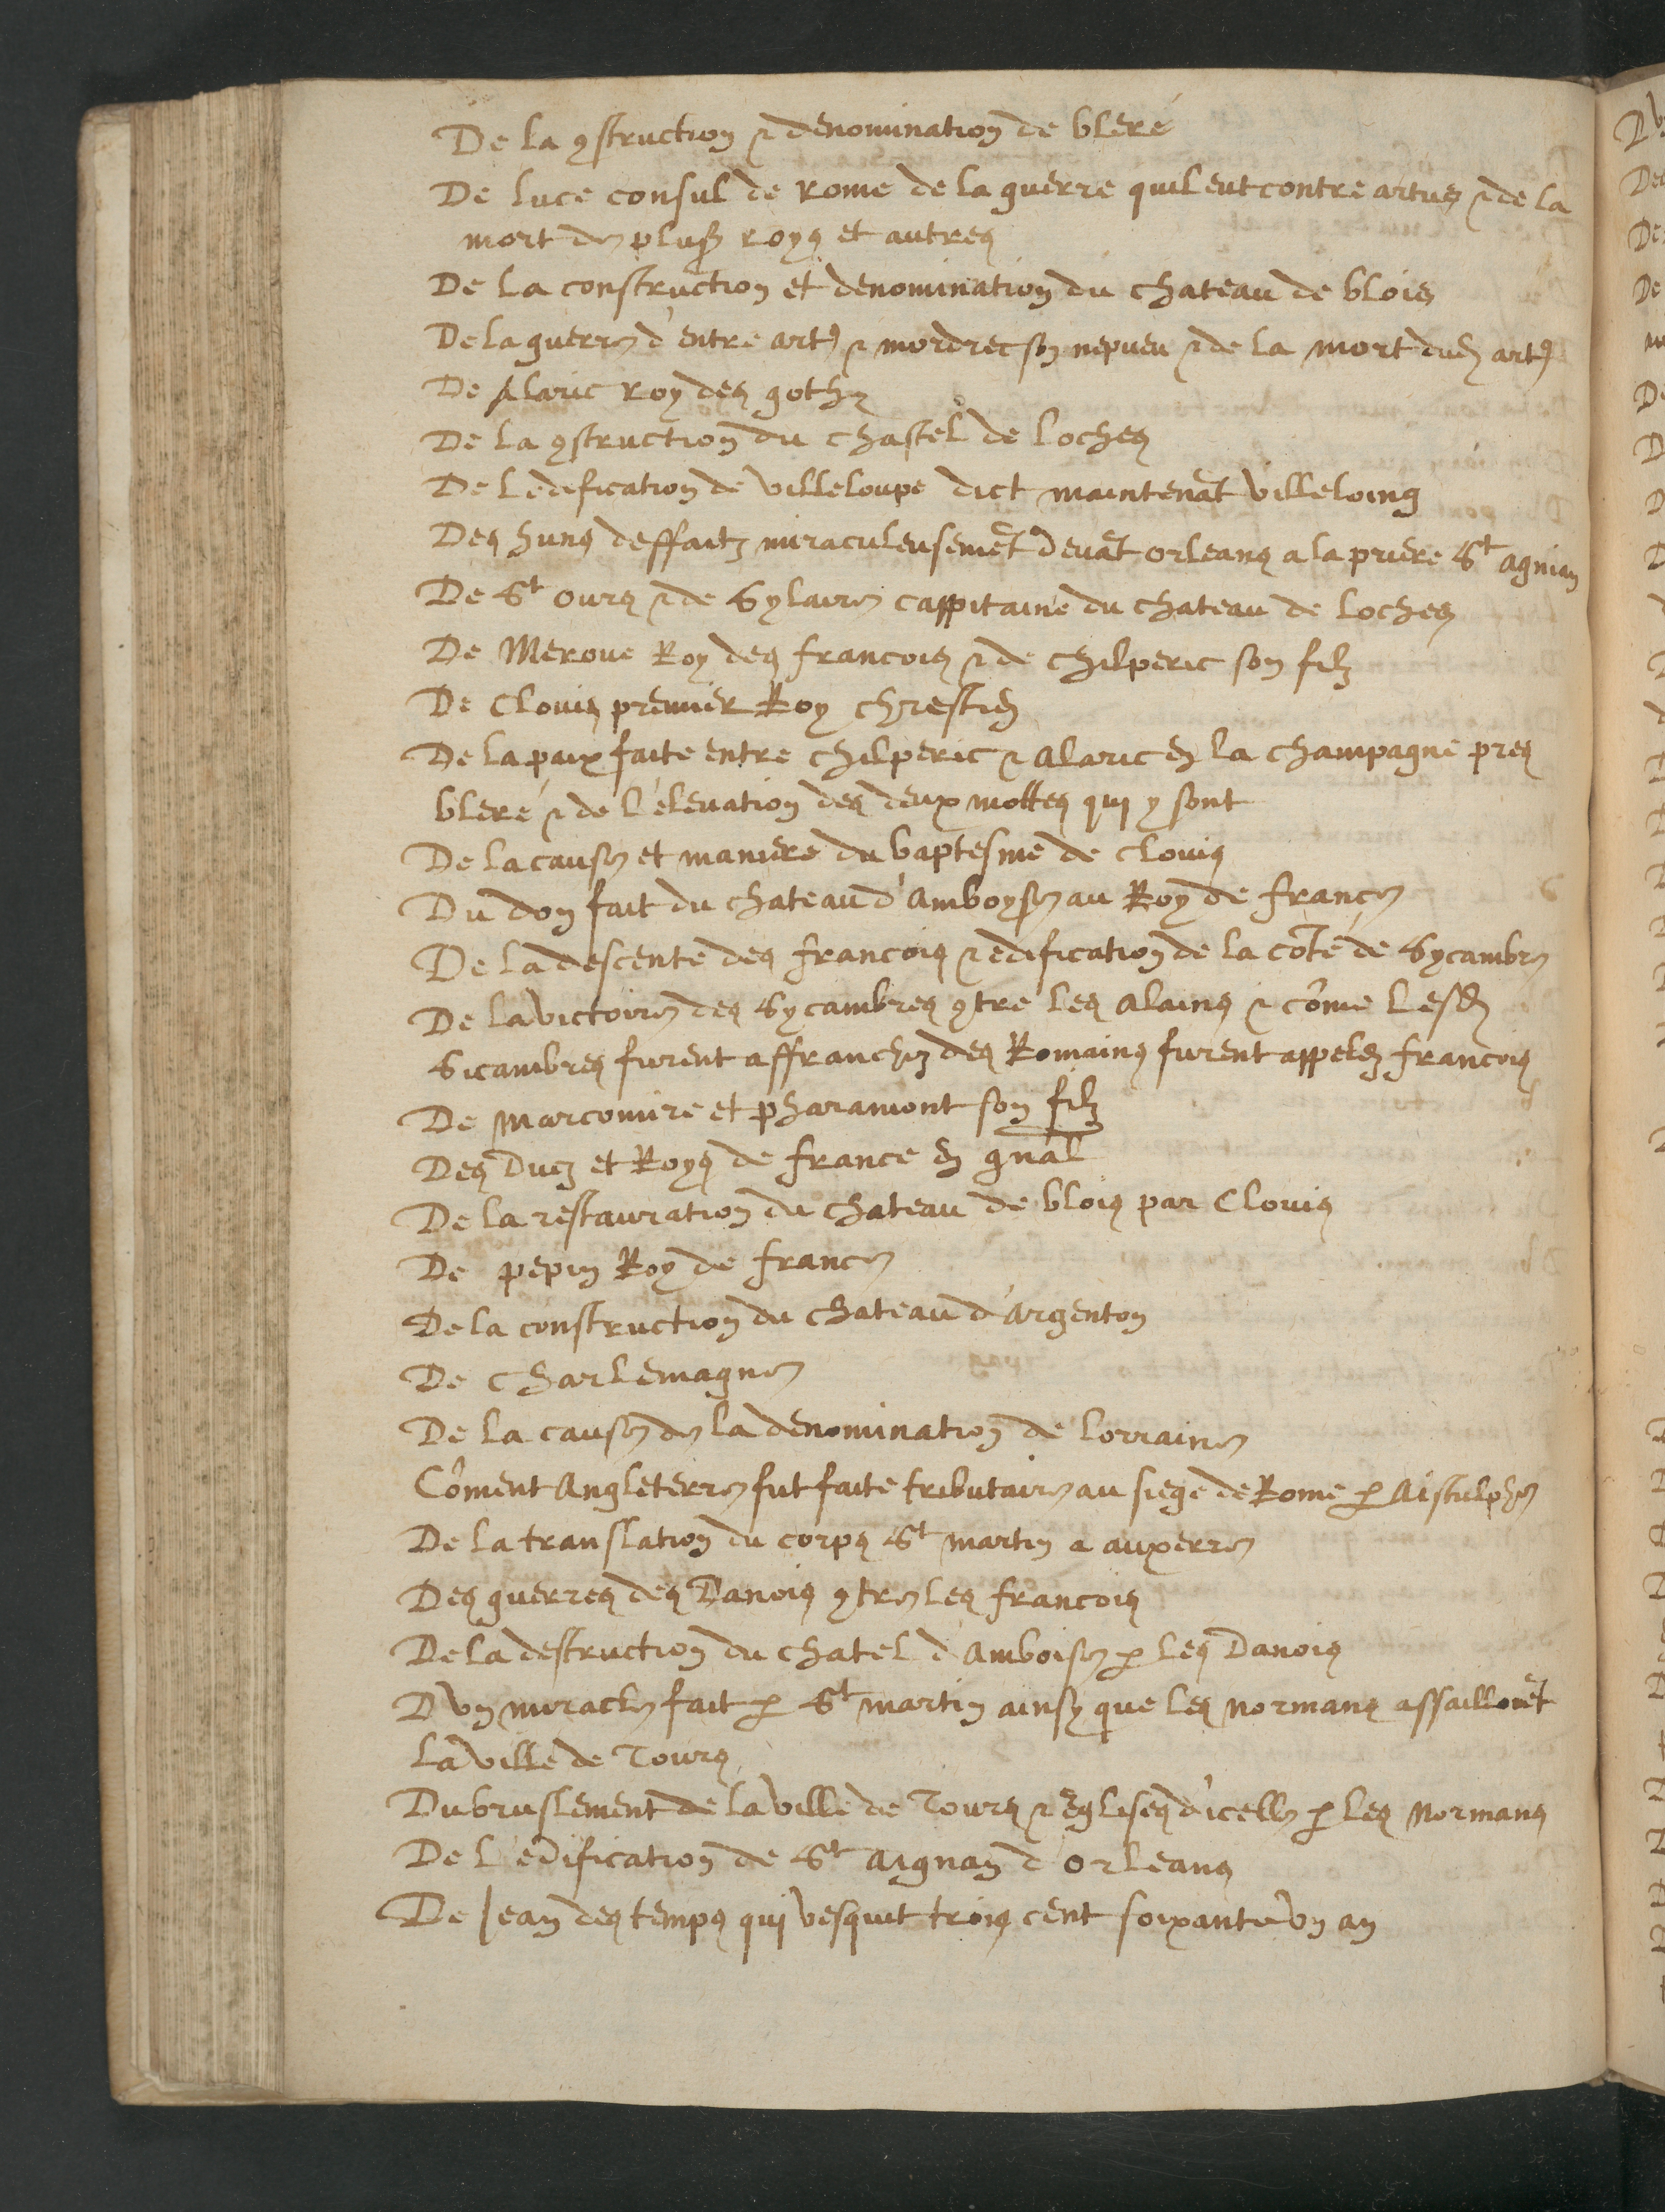 De la ꝯstruction & denomination de bleré
De luce consul de rome de la guerre quil eut contre artus & de la
mort de plusʳˢ roys et autres
De la construction et denomination du chateau de blois
De la guerre d'entre artꝰ & mordrec son nepveu & de la mort dud artꝰ
De Alaric Roy des gothz
De la ꝯstruction du chastel de loches
De l'edification de villeloupe dict maintenāt villeloing
Des huns deffaitz miraculeusemēt devāt orleans a la priere Sᵗ agnian
De Sᵗ ours & de Sylaire cappitaine du chateau de loches
De Merove Roy des francois & de chilperic son filz
De Clovis premier Roy chrestien
De la paix faite entre chilperic & alaric en la champagne pres
bleré & de l'elevation des deux mottes qui y sont
De la cause et maniere du baptesme de clovis
Du don fait du chateau d'amboyse au Roy de france
De la descente des francois & edification de la cōté de Sycambre
De la victoire des Sycambres ꝯtre les alains & cōme lesd
Sicambres furent affranchiz des Romains furent appelez francois
De marcomire et pharamont son filz
Des Ducz et Roys de france en gnāl
De la restauration du chateau de blois par Clovis
De pepin Roy de france
De la construction du chateau d'Argenton
De charlemagne
De la cause de la denomination de lorraine
Cōment Angleterre fut faite tributaire au siege de Rome ꝑ Aistulphe
De la translation du corps Sᵗ martin a auxerre
Des guerres des Danois ꝯtre les francois
De la destruction du chatel d'amboise ꝑ les Danois
D'un miracle fait ꝑ Sᵗ martin ainsy que les normans assailloiēt
la ville de Tours
Du bruslement de la ville de Tours & Eglises d'icelle ꝑ les normans
De l'edification de Sᵗ aignan d'orleans
De Jean des temps qui vesquit trois cent soixante un an